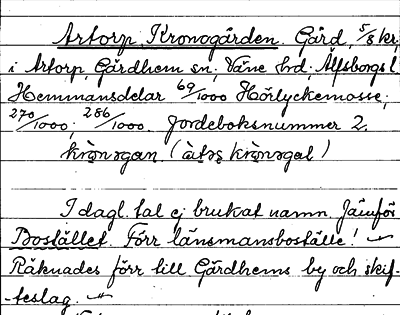 Artorp, Kronogården. Gård, 5/8 kr,
i Artorp, Gärdhem sn, Väne hd, Älfsborgs l
Hemmansdelar 69/1000 Hörlyckemosse;
270/1000; 286/1000. Jordeboksnummer 2.
krònəgan. (àtəs krònəgal)
I dagl. tal ej brukat namn. Jämför
Bostället. Förr länsmansboställe!
Räknades förr till Gärdhems by och skif-
-teslag.